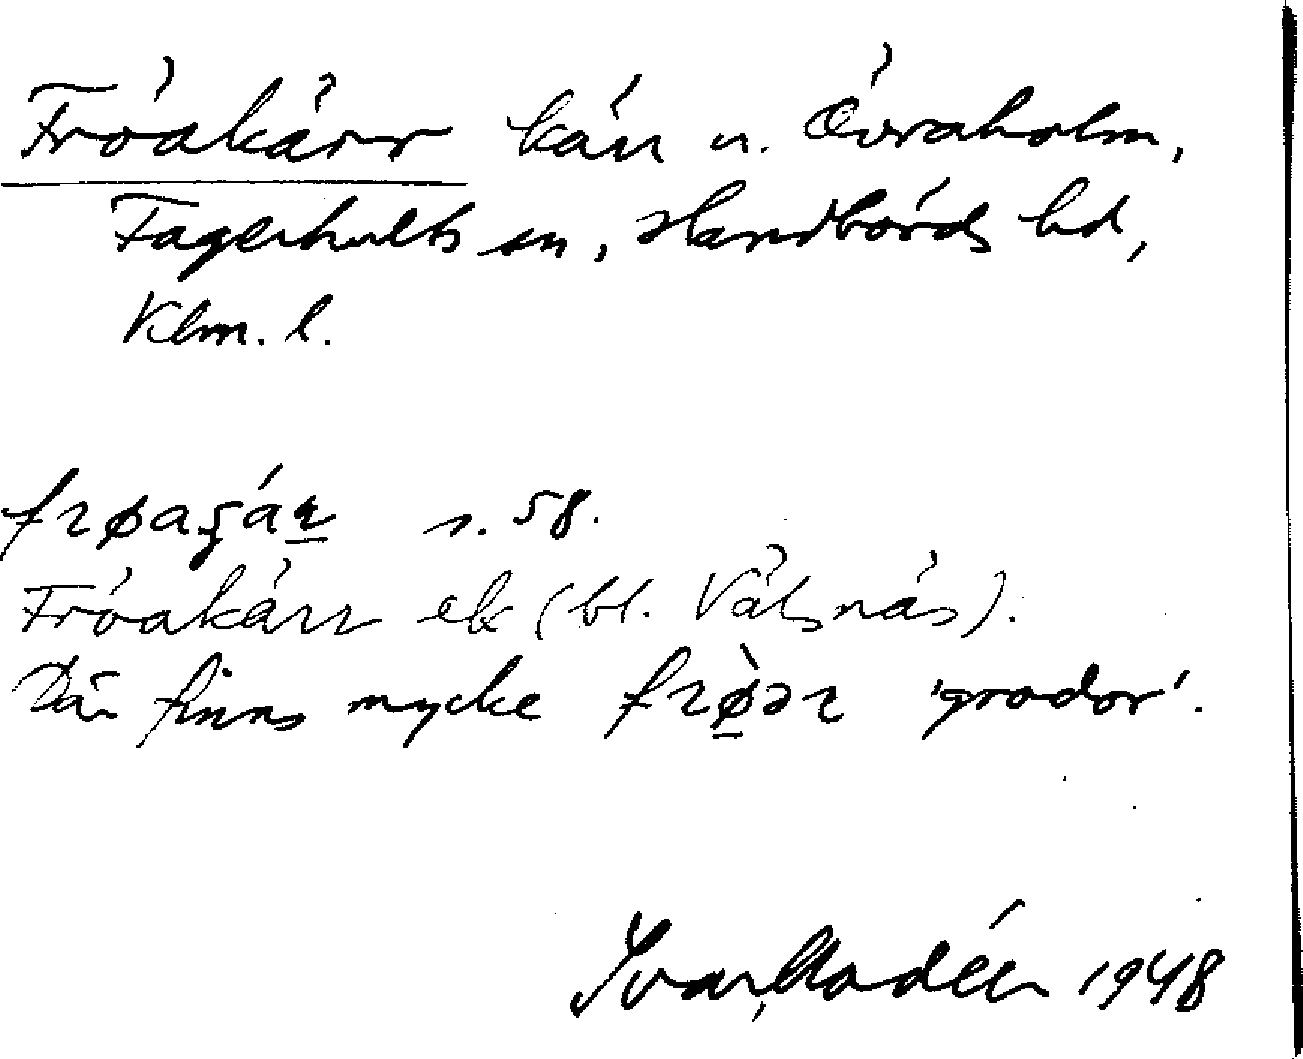 Fröakärr kärr n. Övraholm,
Fagerhults sn, Handbörds hd,
Klm. l.
frøaʂár s. 58.
Fröakärr ek (bl. Vätsnäs).
Där finns mycke frø̀ər 'grodor'.
Ivar Modéer 1948